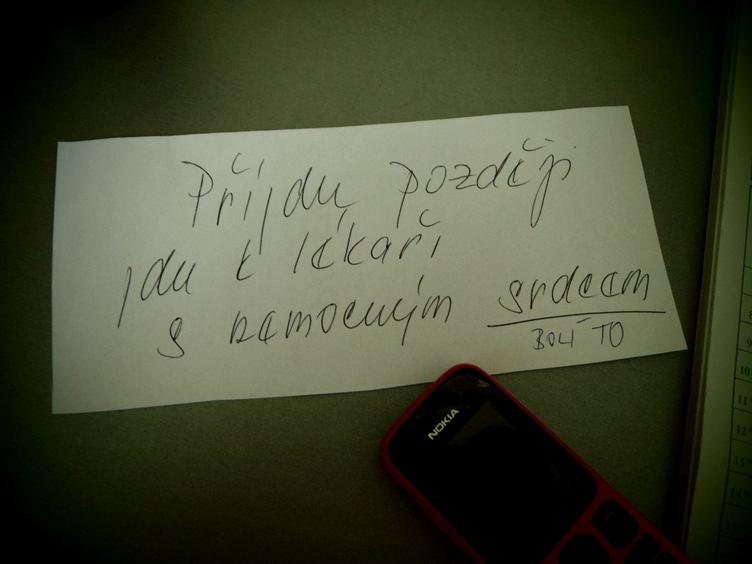 Přijdu později
jdu k lékaři
s nemocným srdcem
BOLÍ TO
NOKIA
9
10
11
12
13
14